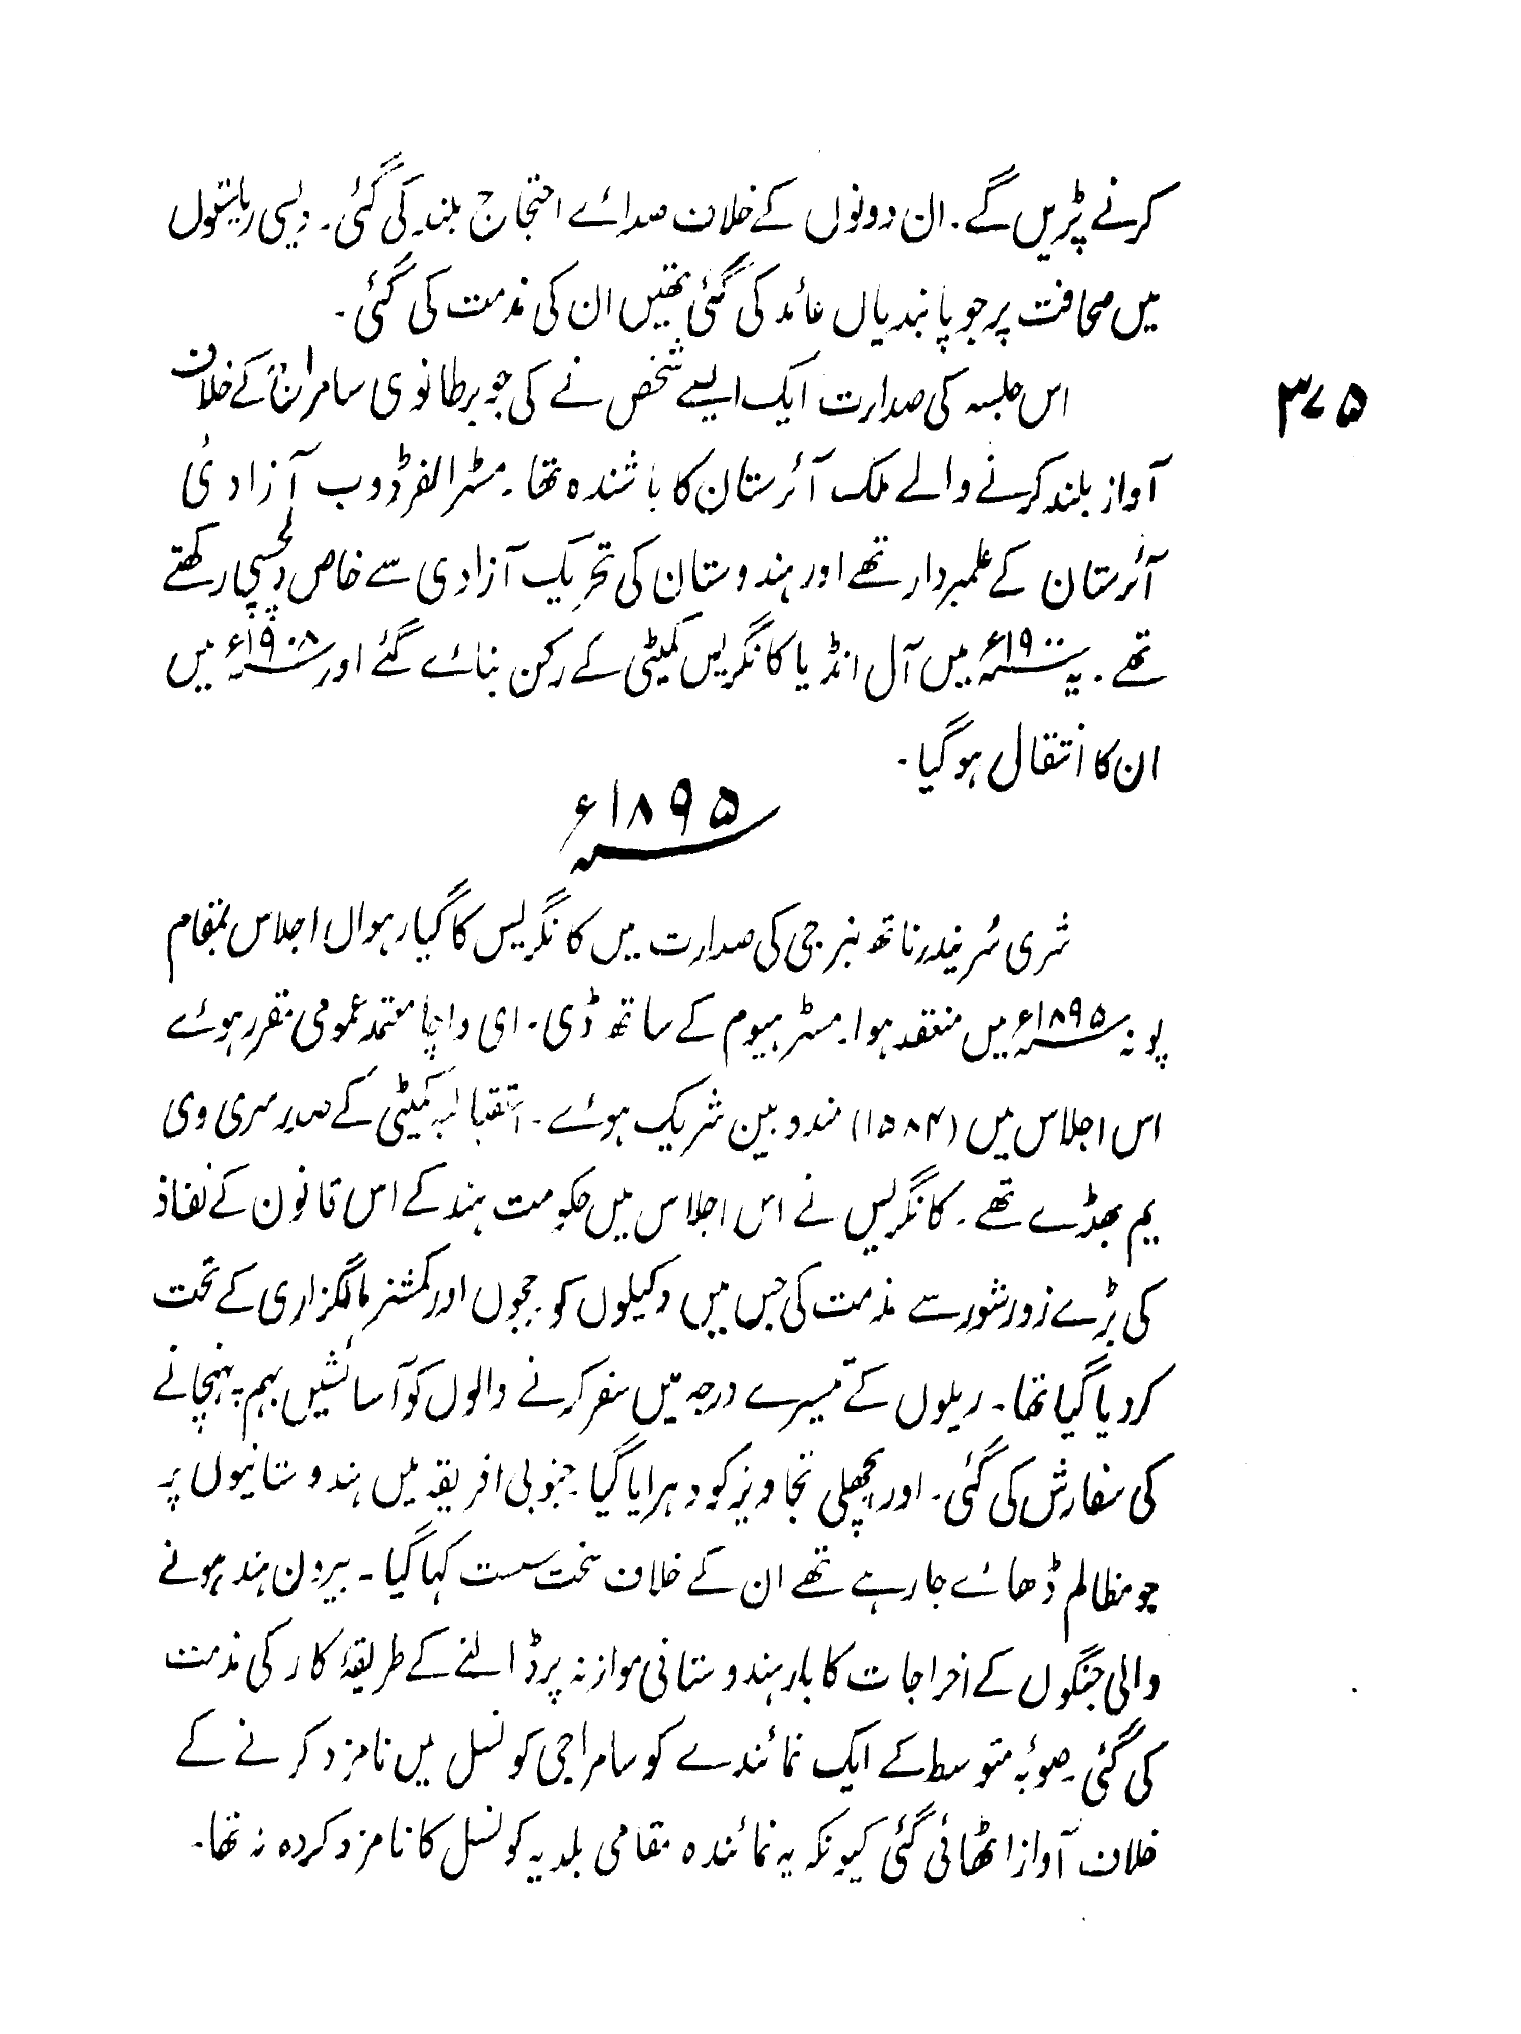 کرنے پڑیں گے۔ ان دونوں کے خلاف صدائے احتجاج بلند کی گئی۔ دیسی ریاستوں
میں صحافت پر جو پابندیاں عائد کی گئی تھیں ان کی مذمت کی گئی۔
اس جلسہ کی صدارت ایک ایسے شخص نے کی جو برطانوی سامراج کے خلاف
۳۷۵
آواز بلند کرنے والے ملک آئرستان کا باشندہ تھا۔ مسٹر الفرڈ وب آزادیٔ
آئرستان کے علمبردار تھے اور ہندوستان کی تحریک آزادی سے خاص دلچسپی رکھتے
تھے۔ یہ ۱۹۰۰ء میں آل انڈیا کانگریس کمیٹی کے رکن بنائے گئے اور ۱۹۰۸ء میں
ان کا انتقال ہوگیا۔
۱۸۹۵ء
شری سُریندر ناتھ بنرجی کی صدارت میں کانگریس کا گیارہواں اجلاس بمقام
پونہ ۱۸۹۵ء میں منعقد ہوا۔ مسٹر ہیوم کے ساتھ ڈی۔ ای واچا معتمد عمومی مقرر ہوئے
اس اجلاس میں (۱۵۸۴) مندوبین شریک ہوئے۔ استقبالیہ کمیٹی کے صدر سری وی
یم بھڈے تھے۔ کانگریس نے اس اجلاس میں حکومت ہند کے اس قانون کے نفاذ
کی بڑے زور شور سے مذمت کی جس میں وکیلوں کو ججوں اور کمشنر مالگزاری کے تحت
کردیا گیا تھا۔ ریلوں کے تیسرے درجہ میں سفر کرنے والوں کو آسائشیں بہم پہنچانے
کی سفارش کی گئی۔ اور پچھلی تجاویز کو دہرایا گیا۔ جنوبی افریقہ میں ہندوستانیوں پر
جو مظالم ڈھائے جارہے تھے ان کے خلاف سخت سست کہا گیا۔ بیرون ہند ہونے
والی جنگوں کے اخراجات کا بار ہندوستانی موازنہ پر ڈالنے کے طریقۂ کار کی مذمت
کی گئی۔ صوبۂ متوسط کے ایک نمائندے کو سامراجی کونسل میں نامزد کرنے کے
خلاف آواز اٹھائی گئی کیونکہ یہ نمائندہ مقامی بلدیہ کونسل کا نامزد کردہ نہ تھا۔